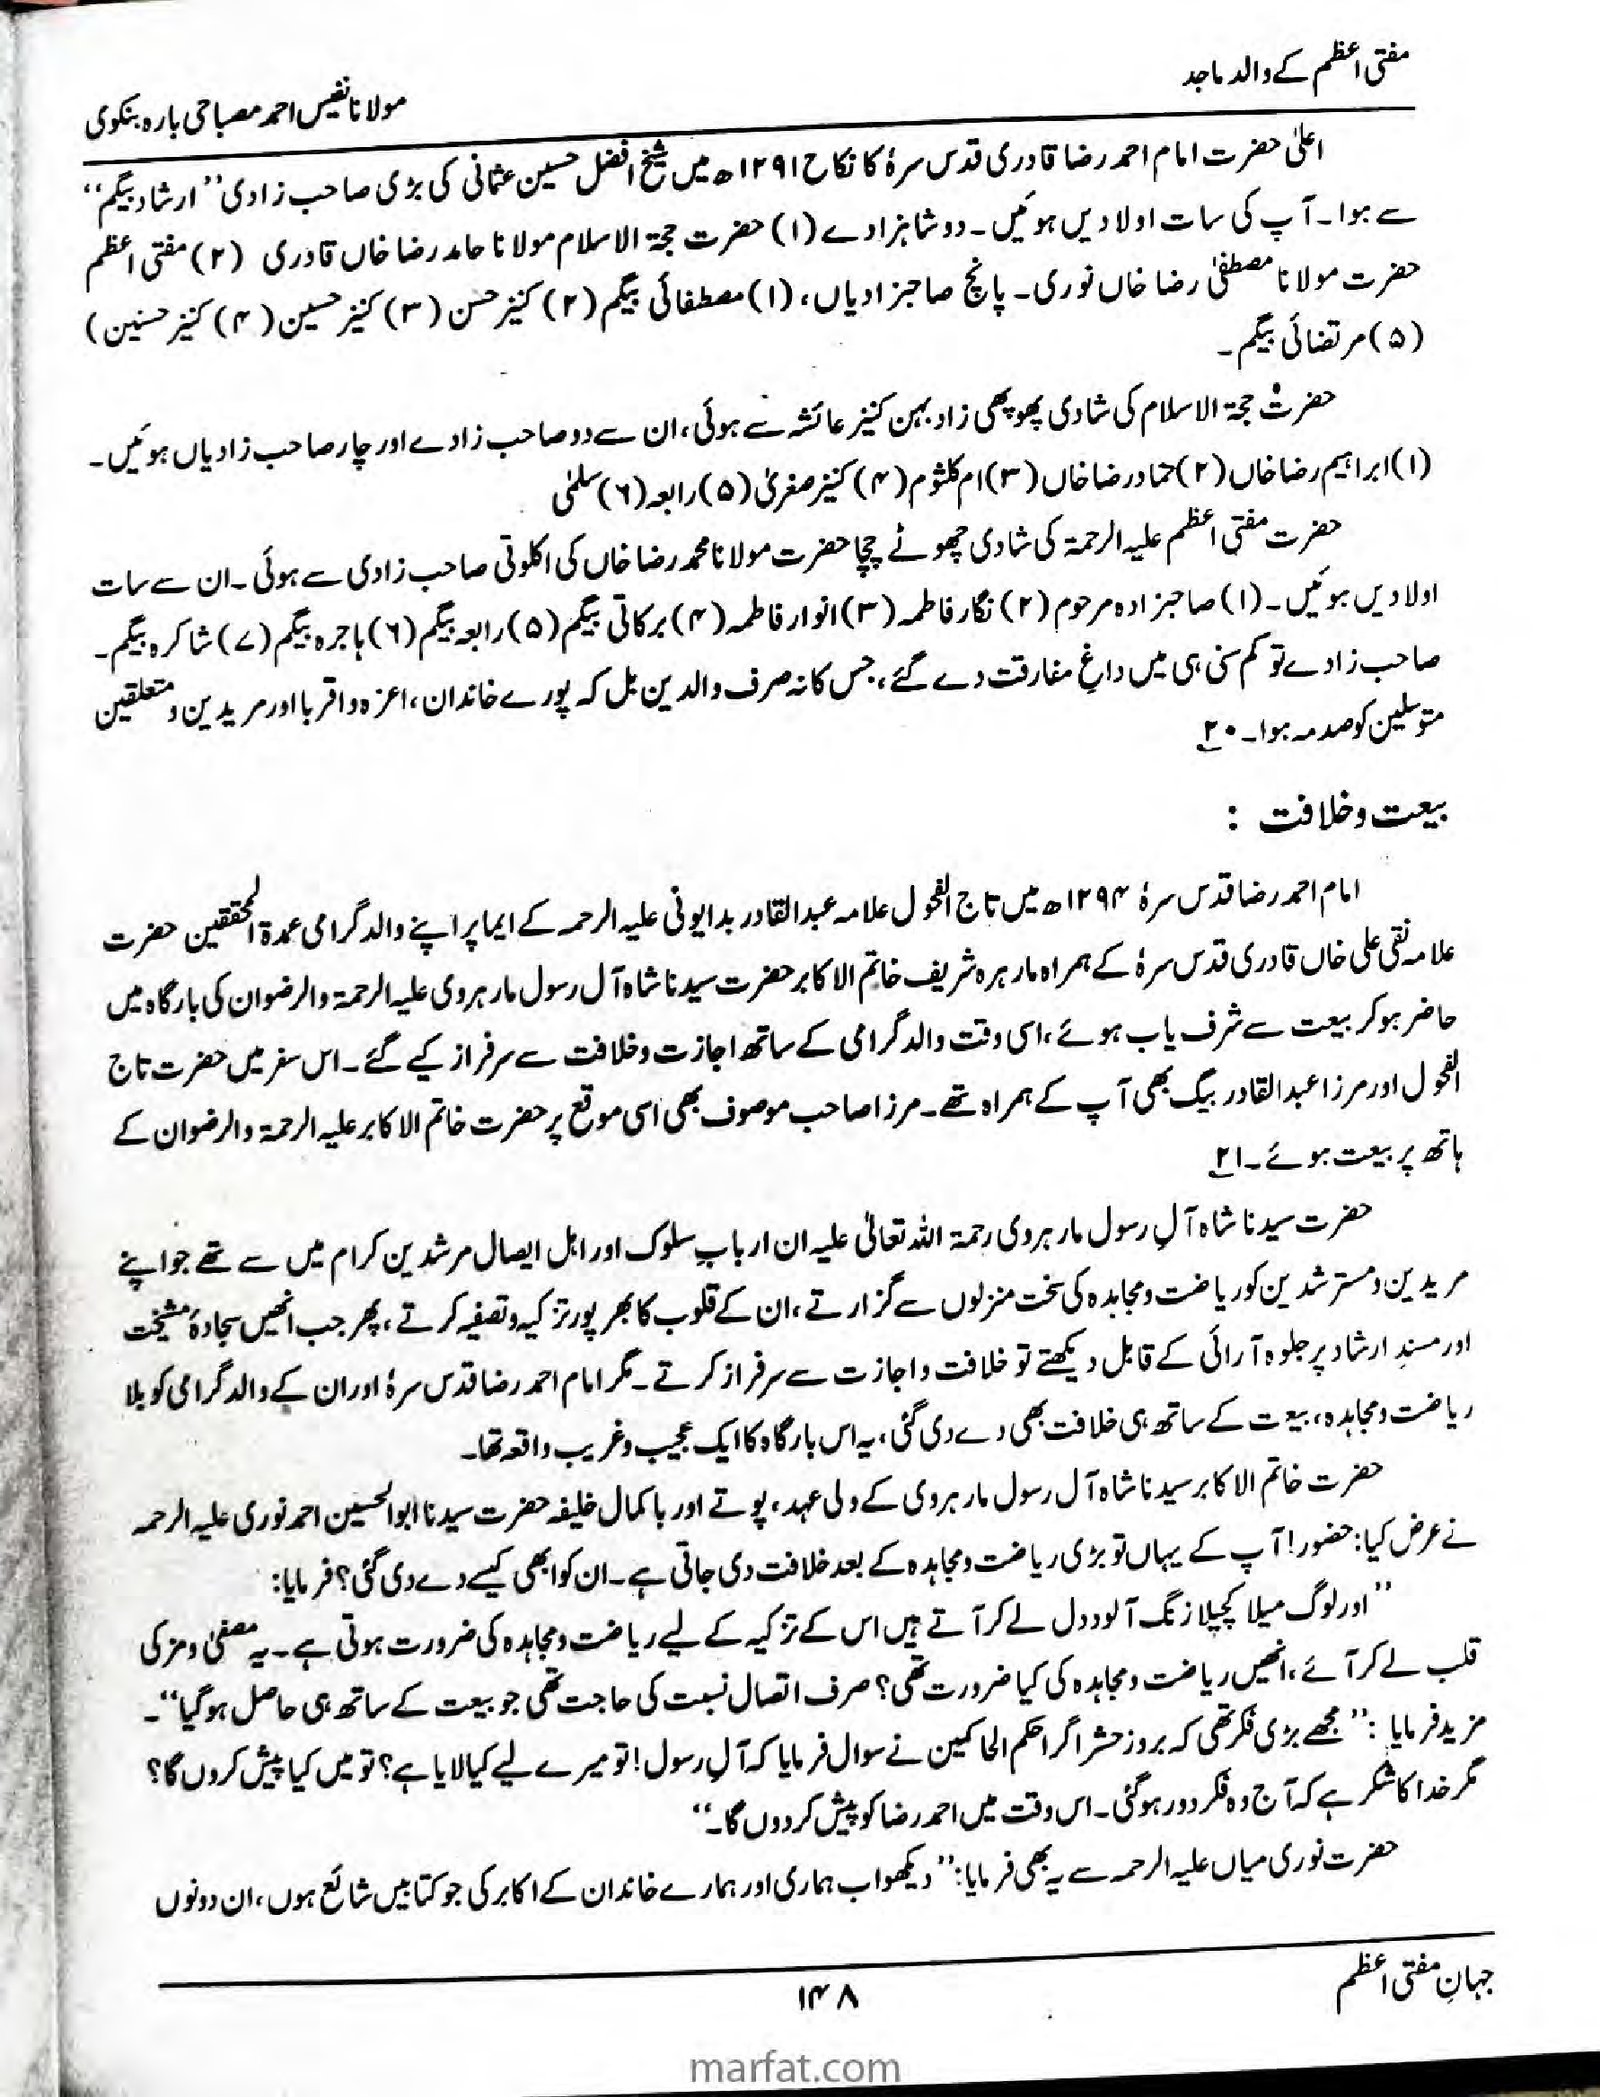 مفتی اعظم کے والد ماجد
مولانا نفیس احمد مصباحی بارہ بنکوی
اعلیٰ حضرت امام احمد رضا قادری قدس سرہٗ کا نکاح ۱۲۹۱ھ میں شیخ افضل حسین عثمانی کی بڑی صاحب زادی ’’ارشاد بیگم‘‘
سے ہوا۔ آپ کی سات اولادیں ہوئیں۔ دو شاہزادے (۱) حضرت حجۃ الاسلام مولانا حامد رضا خاں قادری (۲) مفتی اعظم
حضرت مولانا مصطفیٰ رضا خاں نوری۔ پانچ صاحبزادیاں، (۱) مصطفائی بیگم (۲) کنیز حسن (۳) کنیز حسین (۴) کنیز حسنین)
(۵) مرتضائی بیگم۔
حضرت حجۃ الاسلام کی شادی پھوپھی زاد بہن کنیز عائشہ سے ہوئی، ان سے دو صاحب زادے اور چار صاحب زادیاں ہوئیں۔
(۱) ابراہیم رضا خاں (۲) حماد رضا خاں (۳) ام کلثوم (۴) کنیز صغریٰ (۵) رابعہ (۶) سلمیٰ
حضرت مفتی اعظم علیہ الرحمۃ کی شادی چھوٹے چچا حضرت مولانا محمد رضا خاں کی اکلوتی صاحب زادی سے ہوئی۔ ان سے سات
اولادیں ہوئیں۔ (۱) صاحبزادہ مرحوم (۲) نگار فاطمہ (۳) انوار فاطمہ (۴) برکاتی بیگم (۵) رابعہ بیگم (۶) ہاجرہ بیگم (۷) شاکرہ بیگم۔
صاحب زادے تو کم سنی ہی میں داغِ مفارقت دے گئے، جس کا نہ صرف والدین بل کہ پورے خاندان، اعزہ و اقربا اور مریدین و متعلقین
متوسلین کو صدمہ ہوا۔ ۲۰
بیعت و خلافت :
امام احمد رضا قدس سرہٗ ۱۲۹۴ھ میں تاج الفحول علامہ عبدالقادر بدایونی علیہ الرحمہ کے ایما پر اپنے والد گرامی عمدۃ المحققین حضرت
علامہ نقی علی خاں قادری قدس سرہٗ کے ہمراہ مارہرہ شریف خاتم الاکابر حضرت سیدنا شاہ آل رسول مارہروی علیہ الرحمۃ والرضوان کی بارگاہ میں
حاضر ہو کر بیعت سے شرف یاب ہوئے، اسی وقت والد گرامی کے ساتھ اجازت و خلافت سے سرفراز کیے گئے۔ اس سفر میں حضرت تاج
الفحول اور مرزا عبدالقادر بیگ بھی آپ کے ہمراہ تھے۔ مرزا صاحب موصوف بھی اسی موقع پر حضرت خاتم الاکابر علیہ الرحمۃ والرضوان کے
ہاتھ پر بیعت ہوئے۔ ۲۱
حضرت سیدنا شاہ آلِ رسول مارہروی رحمۃ اللہ تعالیٰ علیہ ان اربابِ سلوک اور اہل ایصال مرشدین کرام میں سے تھے جو اپنے
مریدین و مسترشدین کو ریاضت و مجاہدہ کی سخت منزلوں سے گزارتے، ان کے قلوب کا بھرپور تزکیہ و تصفیہ کرتے، پھر جب انھیں سجادۂ مشیخت
اور مسندِ ارشاد پر جلوہ آرائی کے قابل دیکھتے تو خلافت و اجازت سے سرفراز کرتے۔ مگر امام احمد رضا قدس سرہٗ اور ان کے والد گرامی کو بلا
ریاضت و مجاہدہ، بیعت کے ساتھ ہی خلافت بھی دے دی گئی، یہ اس بارگاہ کا ایک عجیب و غریب واقعہ تھا۔
حضرت خاتم الاکابر سیدنا شاہ آل رسول مارہروی کے ولی عہد، پوتے اور با کمال خلیفہ حضرت سیدنا ابوالحسین احمد نوری علیہ الرحمہ
نے عرض کیا: حضور! آپ کے یہاں تو بڑی ریاضت و مجاہدہ کے بعد خلافت دی جاتی ہے۔ ان کو ابھی کیسے دے دی گئی؟ فرمایا:
’’اور لوگ میلا کچیلا زنگ آلود دل لے کر آتے ہیں اس کے تزکیہ کے لیے ریاضت و مجاہدہ کی ضرورت ہوتی ہے۔ یہ مصفیٰ و مزکی
قلب لے کر آئے، انھیں ریاضت و مجاہدہ کی کیا ضرورت تھی؟ صرف اتصال نسبت کی حاجت تھی جو بیعت کے ساتھ ہی حاصل ہو گیا‘‘۔
مزید فرمایا: ’’مجھے بڑی فکر تھی کہ بروز حشر اگر احکم الحاکمین نے سوال فرمایا کہ آلِ رسول! تو میرے لیے کیا لایا ہے؟ تو میں کیا پیش کروں گا؟
مگر خدا کا شکر ہے کہ آج وہ فکر دور ہو گئی۔ اس وقت میں احمد رضا کو پیش کردوں گا۔‘‘
حضرت نوری میاں علیہ الرحمہ سے یہ بھی فرمایا: ’’دیکھو اب ہماری اور ہمارے خاندان کے اکابر کی جو کتابیں شائع ہوں، ان دونوں
جہانِ مفتی اعظم
۱۴۸
marfat.com